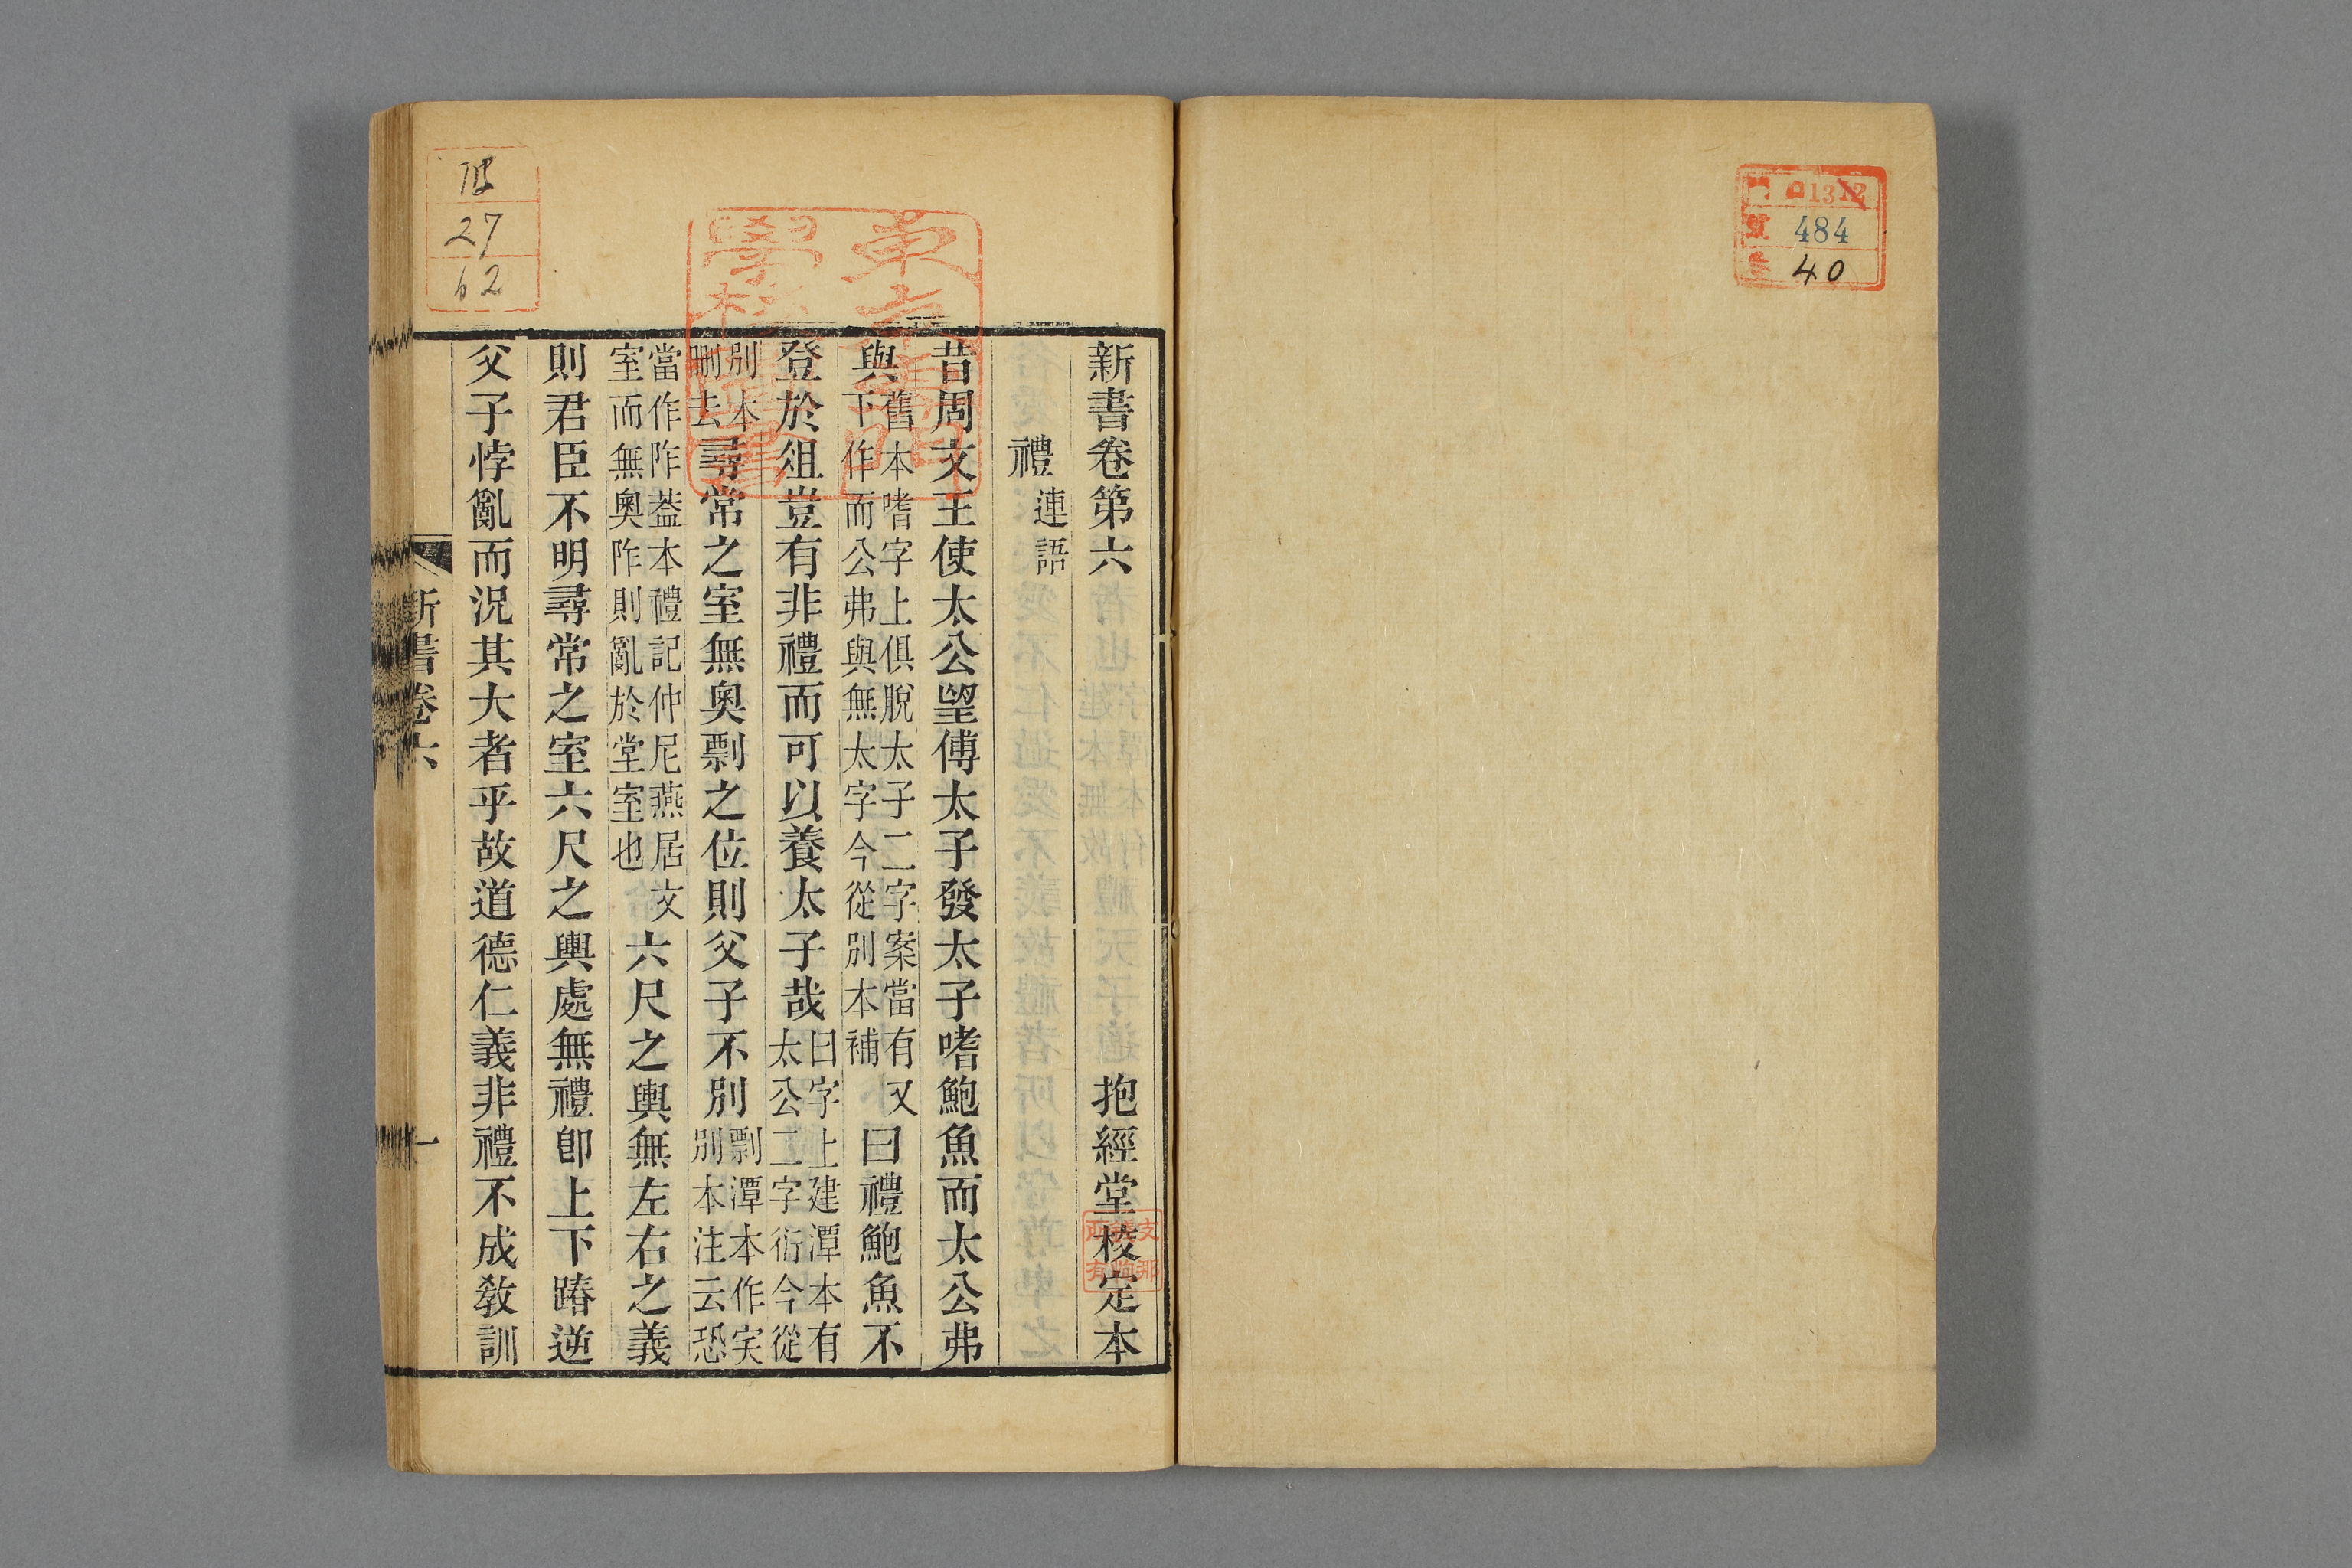 新書卷第六　抱經堂校定本
禮連語
昔周文王使太公望傅太子發太子嗜鮑魚而太公弗
與舊本嗜字上俱脫太子二字案當有又下作而公弗與無太字今從別本補曰禮鮑魚不
登於俎豈有非禮而可以養太子哉曰字上建潭本有太公二字衍今從
別本刪去尋常之室無奧剽之位則父子不別剽潭本作宎別本注云恐
當作阼蓋本禮記仲尼燕居文室而無奧阼則亂於堂室也六尺之輿無左右之義
則君臣不明尋常之室六尺之輿處無禮卽上下踳逆
父子悖亂而況其大者乎故道德仁義非禮不成敎訓
新書卷六
一
27
62
1312
484
40